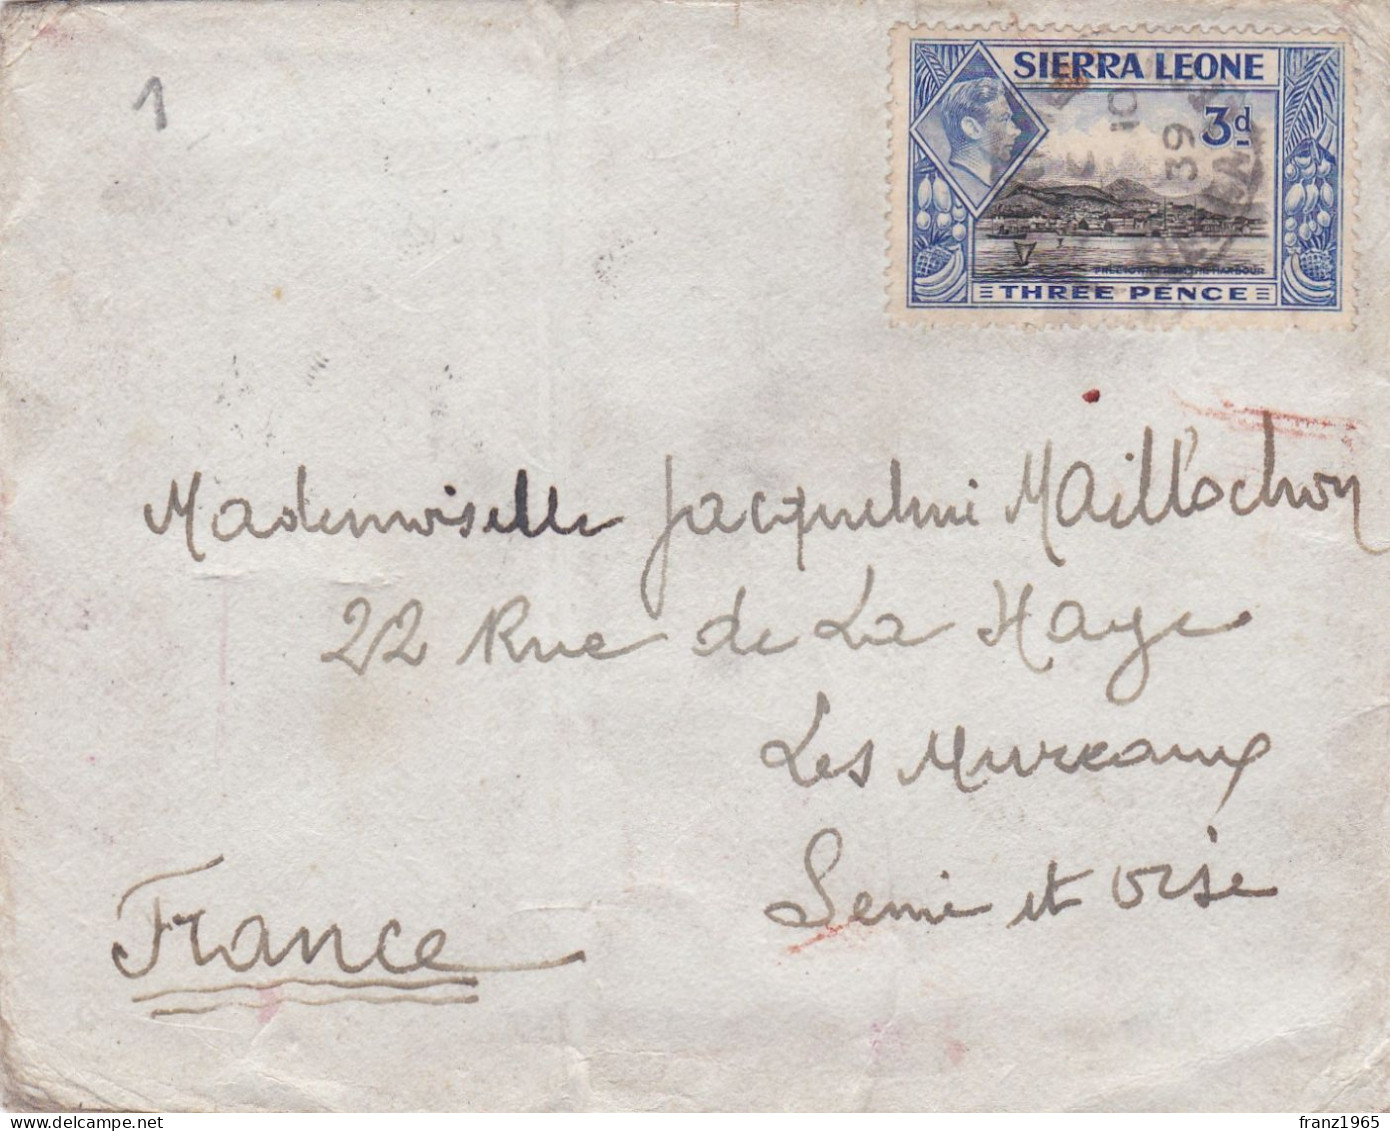 1
SIERRA LEONE
3d
39
FREETOWN FROM THE HARBOUR
THREE PENCE
Mademoiselle Jacqueline Maillochon
22 Rue de La Haye
Les Mureaux
Seine et Oise
France
franz1965